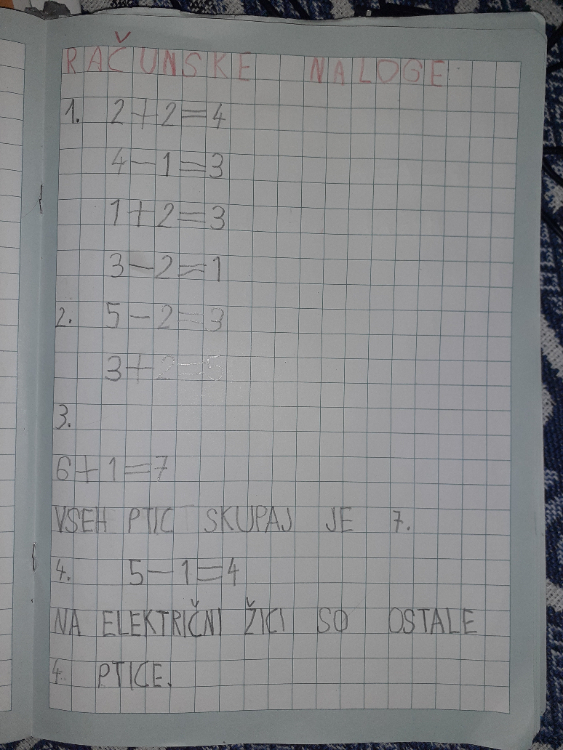 RAČUNSKE NALOGE
1. 2+2=4
4-1=3
1+2=3
3-2=1
2. 5-2=3
3+2
3.
6+1=7
VSEH PTIC SKUPAJ JE 7.
4. 5-1=4
NA ELEKTRIČNI ŽICI SO OSTALE
4 PTICE.